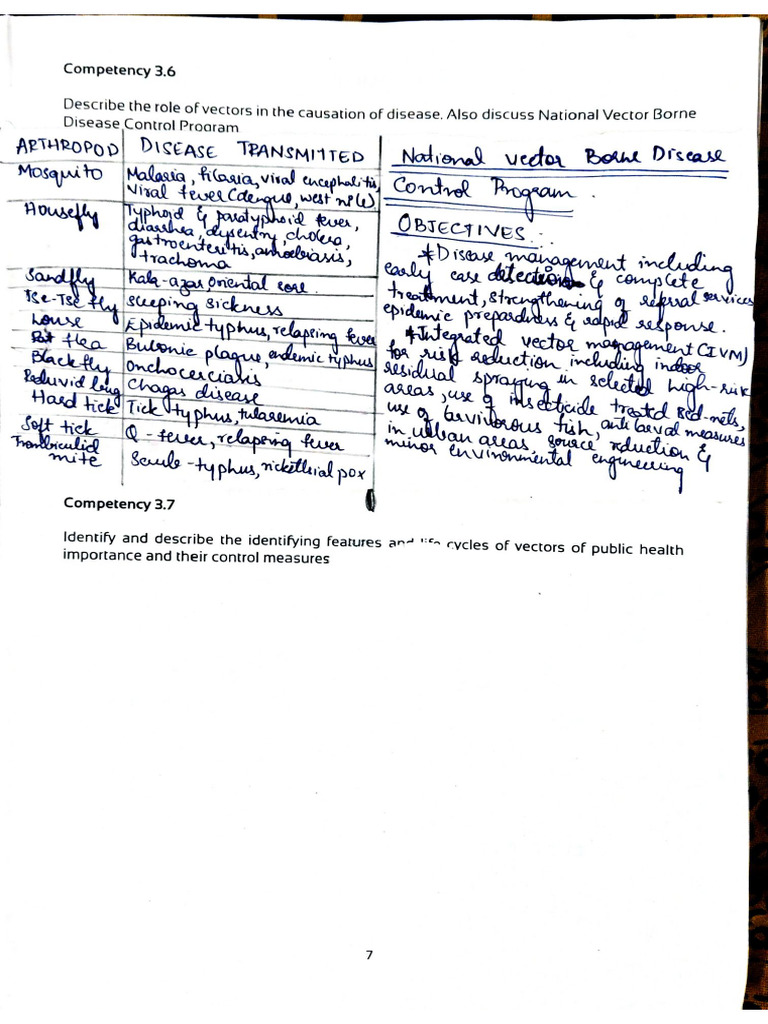 Competency 3.6
Describe the role of vectors in the causation of disease. Also discuss National Vector Borne
Disease Control Program
ARTHROPOD DISEASE TRANSMITTED
Mosquito Malaria, filaria, viral encephalitis,
Viral fever (dengue, west nile).
Housefly Typhoid & paratyphoid fever,
diarrhea, dysentry, cholera,
gastroenteritis, amoebiasis,
trachoma
Sandfly Kala-azar, oriental sore.
Tse-Tse fly Sleeping sickness
Louse Epidemic typhus, relapsing fever
Rat flea Bubonic plague, endemic typhus
Blackfly Onchocerciasis
Reduvid bug Chagas disease
Hard tick Tick typhus, tularemia
Soft tick Q-fever, relapsing fever
Trombiculid
mite Scrub-typhus, rickettsial pox
National vector Borne Disease
Control Program.
OBJECTIVES:-
* Disease management including
early case detection & complete
treatment, strengthening of referral services
epidemic preparedness & rapid response.
* Integrated vector management (IVM)
for risk reduction including indoor
residual spraying in selected high-risk
areas, use of insecticide treated bed-nets,
use of larvivorous fish, anti larval measures
in urban areas, source reduction &
minor environmental engineering
Competency 3.7
Identify and describe the identifying features and life cycles of vectors of public health
importance and their control measures
7